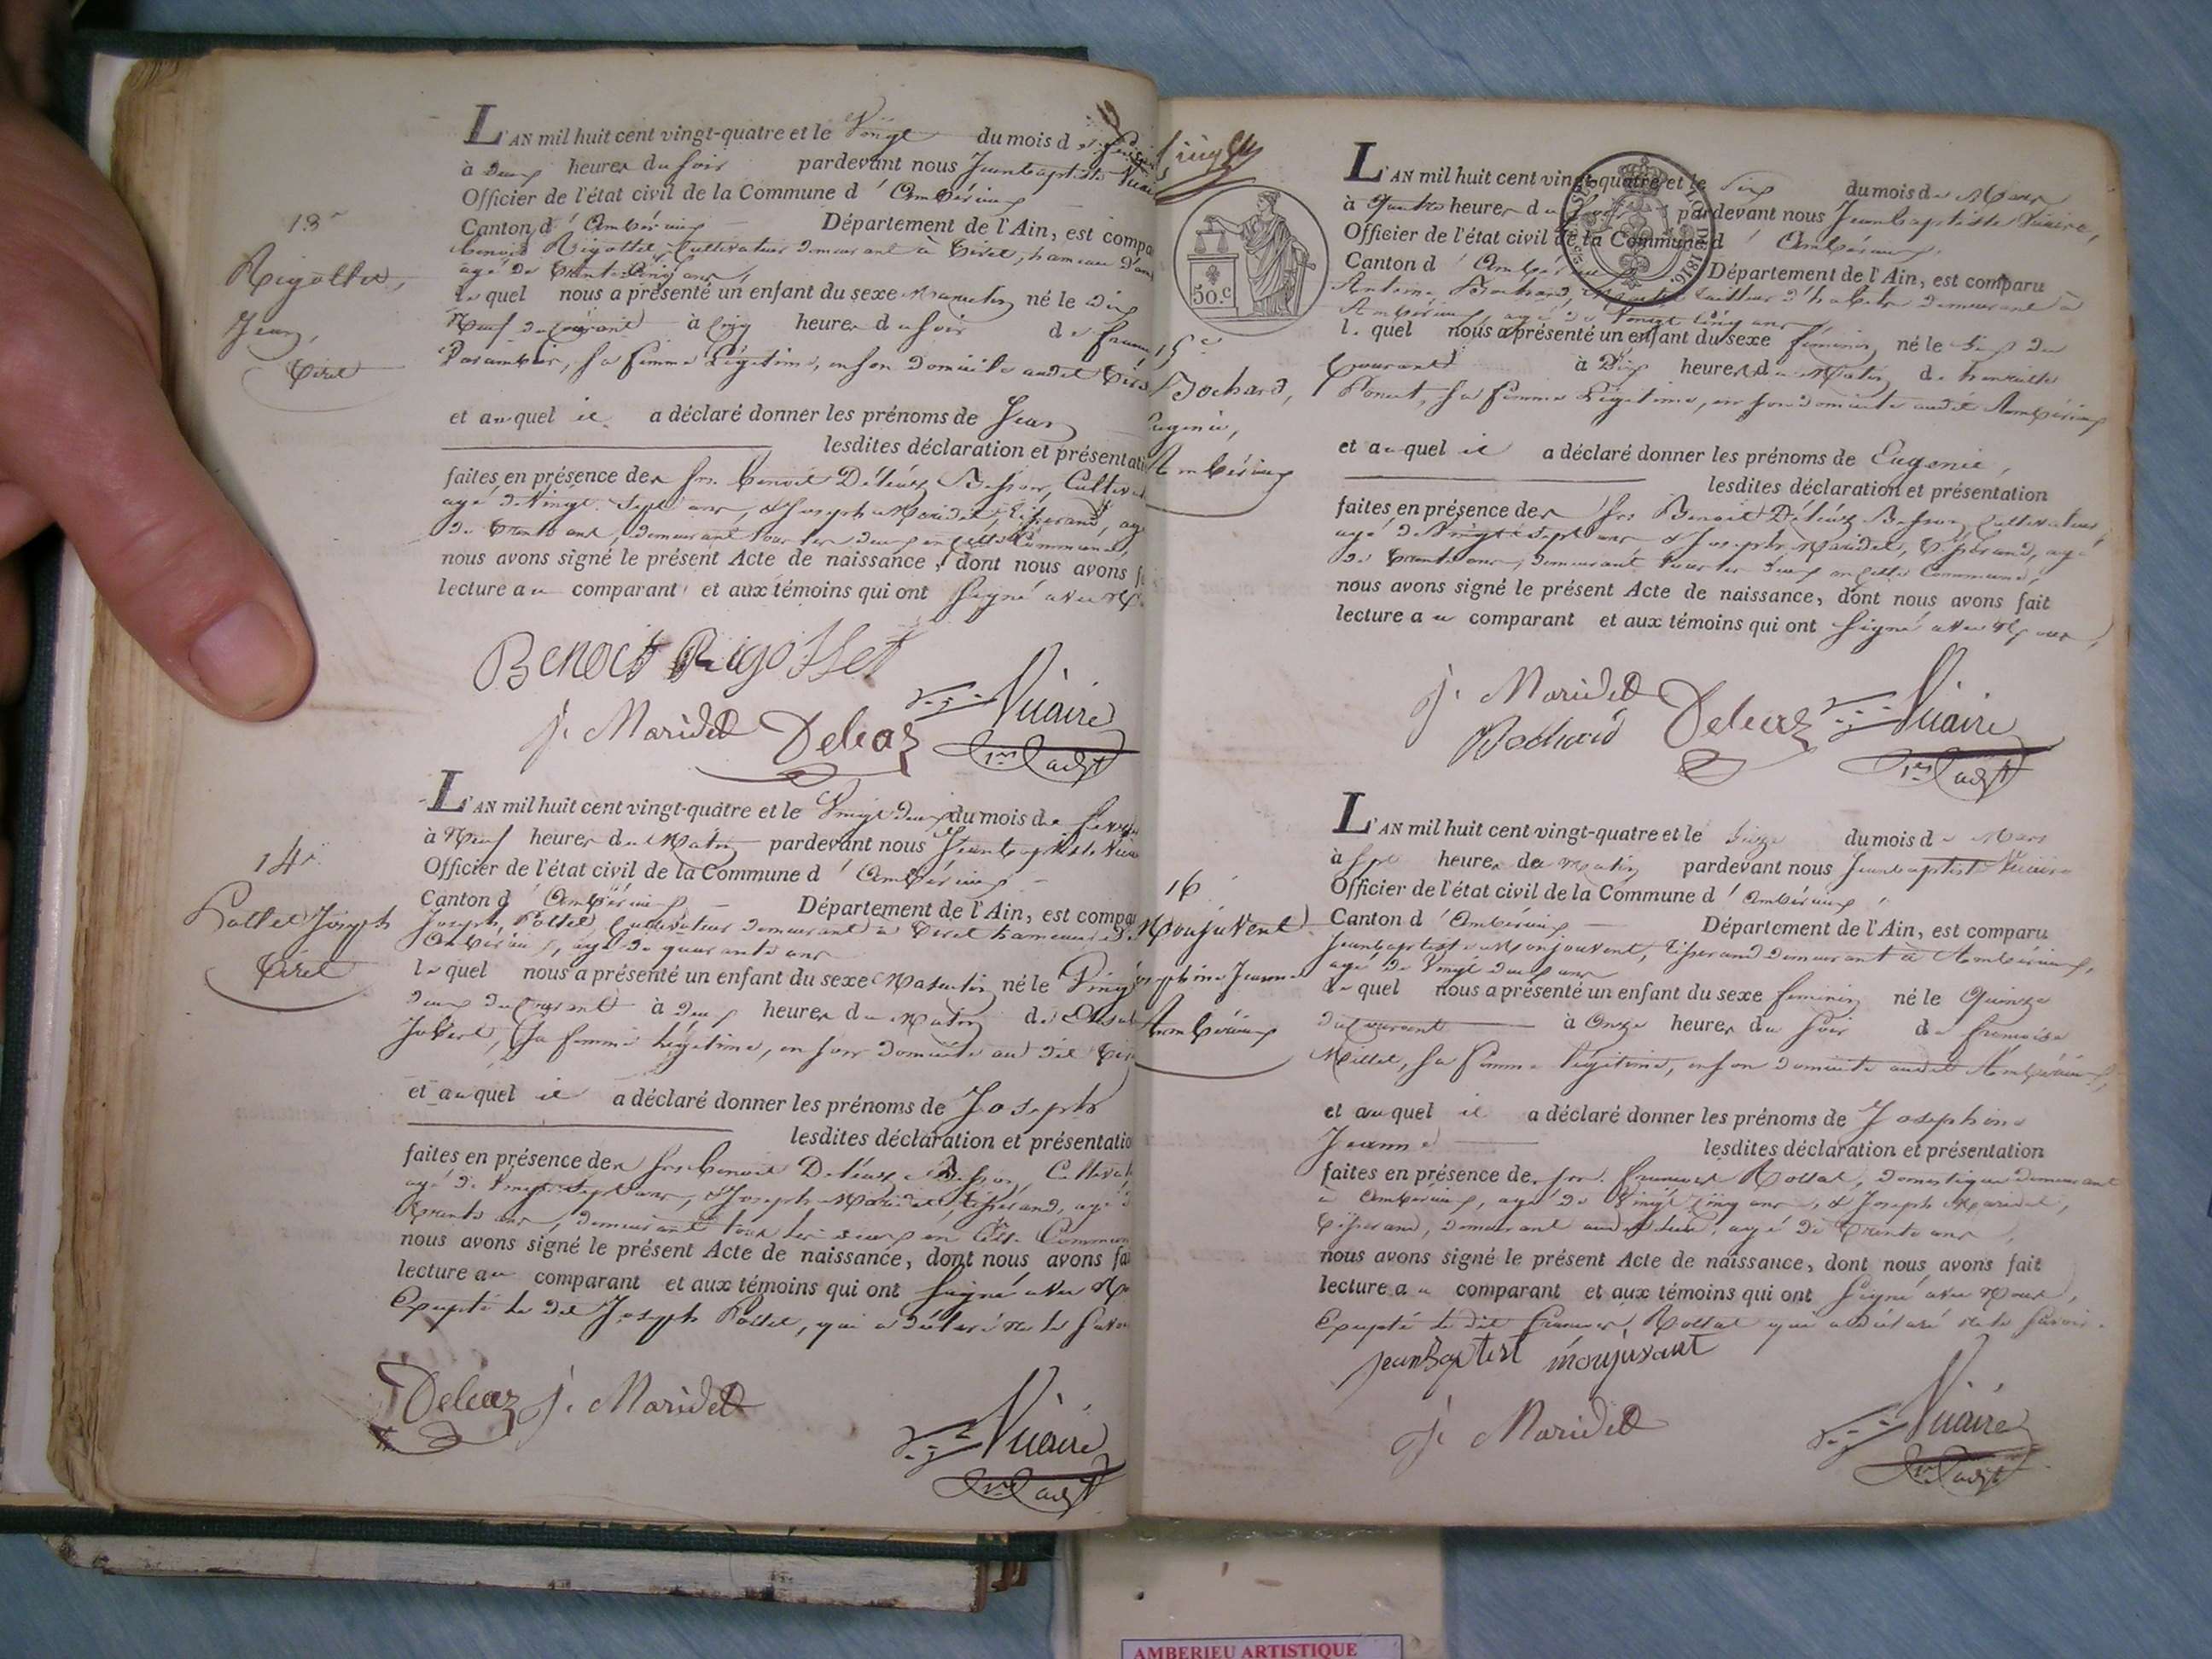 L'AN mil huit cent vingt-quatre et le Vingt du mois de
à deux heures du soir pardevant nous Jeanbaptiste
Officier de l'état civil de la Commune d'Ambérieux
Canton d'Ambérieux Département de l'Ain, est compa
Benoit Rigottet, Cultivateur demeurant à Tiret, hameau d'am
agé de trente cinq ans,
lequel nous a présenté un enfant du sexe Masculin né le dix
Neuf du Courant à Cinq heures du soir de
sa femme Légitime, en son domicile audit
et auquel il a déclaré donner les prénoms de Jean
lesdites déclaration et présentati
faites en présence des srs. Benoit Déléaz Besson, Cultivat
agé de Vingt Sept ans, & Joseph Maridet, Tisserand, agé
de trente ans, demeurant tous les deux en cette Commune,
nous avons signé le présent Acte de naissance, dont nous avons f
lecture au comparant et aux témoins qui ont signé avec
13e
Rigottet,
Jean,
Tiret
Benoit Rigottet
j. Maridet Deleaz Vicaire
1er adjt
L'AN mil huit cent vingt-quatre et le Vingt deux du mois de
à Neuf heures du Matin pardevant nous Jeanbaptiste
Officier de l'état civil de la Commune d'Ambérieux
Canton d'Ambérieux Département de l'Ain, est compa
Joseph Pottet, Cultivateur demeurant à Tiret hameau d
Ambérieux, agé de quarante ans
lequel nous a présenté un enfant du sexe Masculin né le Vingt
deux du Courant à deux heures du Matin de
sa femme Légitime, en son domicile audit
et auquel il a déclaré donner les prénoms de Joseph
lesdites déclaration et présentatio
faites en présence des srs Benoit Déléaz Besson, Cultivat
agé de Vingt Sept ans, & Joseph Maridet, tisserand, agé
trente ans, demeurant tous les deux en cette Commun
nous avons signé le présent Acte de naissance, dont nous avons fai
lecture au comparant et aux témoins qui ont signé avec
Excepté le dit Joseph Pottet, qui a déclaré ne le
14e
Pottet Joseph
Tiret
Deleaz j. Maridet
Vicaire
1er adjt
50.c
1816
L'AN mil huit cent vingt-quatre et le dix du mois de Mars
à Quatre heures du soir pardevant nous Jeanbaptiste Vicaire,
Officier de l'état civil de la Commune d'Ambérieux
Canton d'Ambérieux Département de l'Ain, est comparu
Antoine Bochard, tailleur d'habits demeurant à
Ambérieux, agé de Vingt Cinq ans
lequel nous a présenté un enfant du sexe féminin né le dix du
Courant à Dix heures du Matin de
sa femme Légitime, en son domicile audit Ambérieux
et auquel il a déclaré donner les prénoms de Eugénie,
lesdites déclaration et présentation
faites en présence des srs Benoit Déléaz Besson Cultivateur,
agé de Vingt Sept ans & Joseph Maridet, Tisserand, agé
de trente ans, demeurant tous les deux en cette Commune,
nous avons signé le présent Acte de naissance, dont nous avons fait
lecture au comparant et aux témoins qui ont signé avec Nous,
15e
Bochard,
Eugénie,
Ambérieux
j. Maridet
Bochard Deleaz Vicaire
1er adjt
L'AN mil huit cent vingt-quatre et le Seize du mois de Mars
à Sept heures du Matin pardevant nous Jeanbaptiste Vicaire
Officier de l'état civil de la Commune d'Ambérieux
Canton d'Ambérieux Département de l'Ain, est comparu
Jeanbaptiste Monjouvent, tisserand demeurant à Ambérieux,
agé de Vingt deux ans
lequel nous a présenté un enfant du sexe féminin né le Quinze
du Courant à Onze heures du soir de françoise
Millet, sa femme légitime, en son domicile audit Ambérieux,
et auquel il a déclaré donner les prénoms de Josephine
Jeanne lesdites déclaration et présentation
faites en présence des srs. françois Domestique demeurant
à Ambérieux, agé de Vingt Cinq ans, & Joseph Maridet,
tisserand, demeurant audit lieu, agé de trente ans,
nous avons signé le présent Acte de naissance, dont nous avons fait
lecture au comparant et aux témoins qui ont signé avec Nous,
Excepté le dit françois qui a déclaré ne le savoir.
16
Monjuvent
Josephine Jeanne
Ambérieux
jean Baptist monjuvant
j. Maridet Vicaire
1er adjt
AMBERIEU ARTISTIQUE